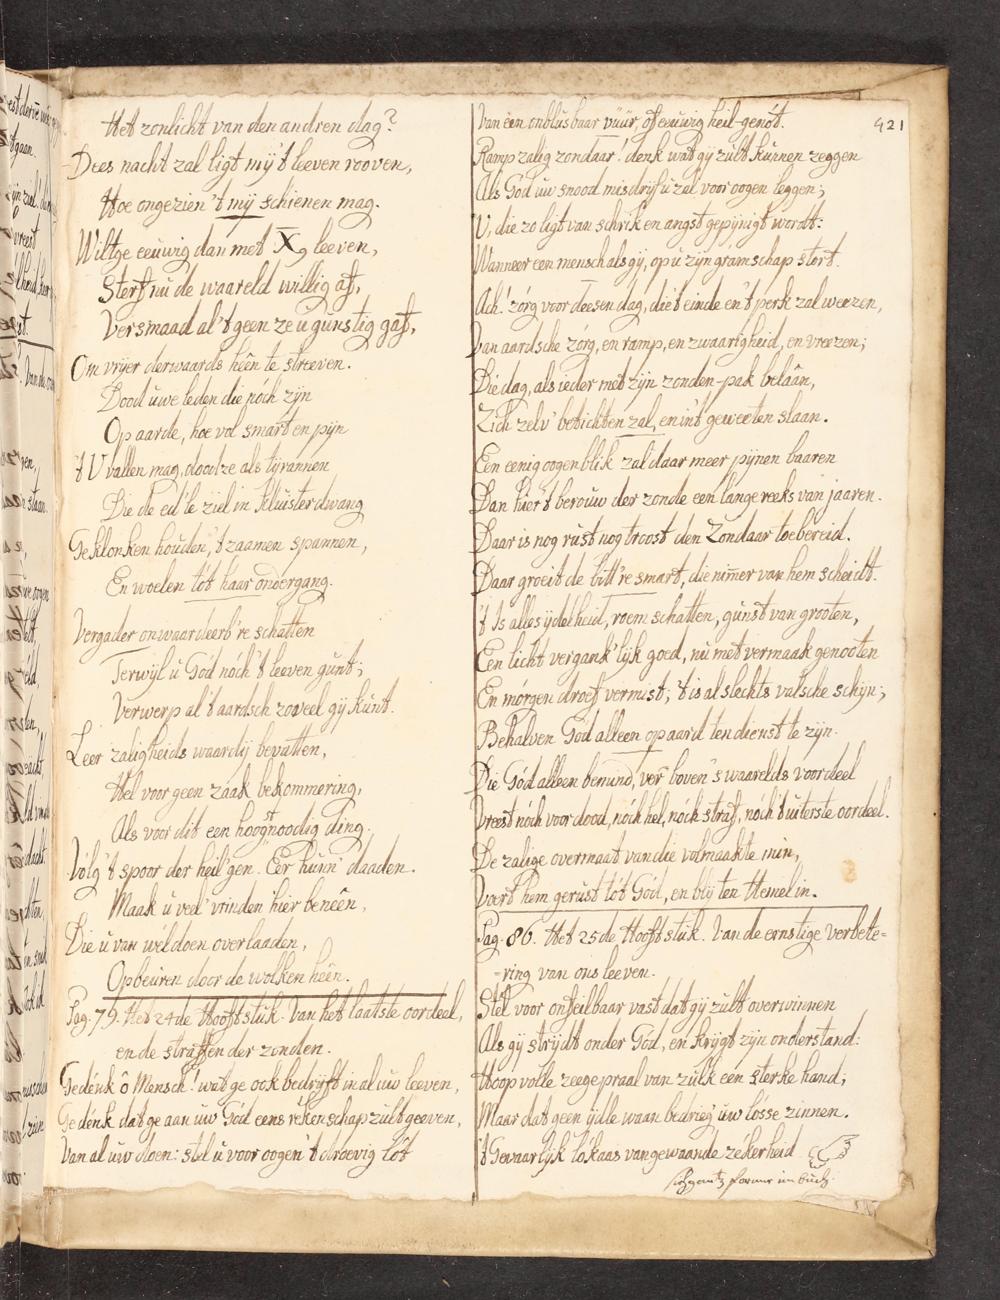 421
Het zonlicht van den andren dag?
Dees nacht zal ligt mÿ't leeven rooven,
Hoe ongezien 't mÿ schienen mag.
Wiltge eeuwig dan met X leeven,
Sterf nu de waareld willig af,
Versmaad al 't geen ze u gunstig gaf,
Om vrijer derwaards heên te streeven.
Dood uwe leden die nóch zyn
Op aarde, hoe vol smart en pyn
't U vallen mag, dood ze als tÿrannen
Die de ed'le ziel in kluisterdwang
Geklonken houden, 't zaamen spannen,
En woelen tót haar ondergang.
Vergader onwaardeerb're schatten
Terwyl u Gód nóch 't leeven gunt;
Verwerp al 't aardsch zoveel gÿ kunt.
Leer zaligheids waardij bevatten,
Wel voor geen zaak bekommering,
Als voor dit een hoogstnoodig ding.
Vólg 't spoor der heil'gen. Eer hunn' daaden.
Maak u veel vrinden hier beneên,
Die u van wél doen overlaaden,
Opbeuren door de wolken heên.
Pag. 79. Het 24de Hooftstuk. Van het laatste oordeel,
en de straffen der zonden.
Gedénk ô Mensch! wat ge ook bedrÿft in al uw leeven,
Gedénk dat ge aan uw Gód eens rékenschap zult geeven,
Van al uw doen: stel u voor oogen 't droevig lót
Van één onblusbaar vuur, óf eeuwig heil-genót.
Rampzalig zondaar! denk wat gÿ zult kunnen zeggen
Als Gód uw snood misdrÿf u zal voor oogen leggen;
U, die zo ligt van schrik en angst gepÿnigt wordt:
Wanneer een mensch als gÿ, op u zÿn gramschap stort.
Ach! zórg voor deesen dag, die 't einde en 't perk zal weezen,
Van aardsche zórg, en ramp, en zwaarigheid, en vreezen;
Die dag, als ieder mét zÿn zonden-pak belaân,
Zich zelv' betichten zal, en in 't geweeten slaan.
Een eenig oogenblik zal daar meer pÿnen baaren
Dan hier 't berouw der zonde een lange reeks van jaaren.
Daar is nog rust nog troost den Zondaar toebereid.
Daar groeit de bitt're smart, die nimer van hem scheidt.
't Is alles ÿdelheid, roem schatten, gunst van grooten,
Een licht vergank'lÿk goed, nu mét vermaak genooten
En mórgen droef vermist; 't is al slechts valsche schÿn;
Behalven God alleen op aard ten dienst te zÿn.
Die Gód alleen bemind, ver boven 's waarelds voordeel
Vreest nóch voor dood, nóch hel, nóch straf, nóch 't uiterste oordeel.
De zalige overmaat van die volmaakte min,
Voert hem gerust tót Gód, en blÿ ten Hemel in.
Pag. 86. Het 25de Hooftstuk. Van de ernstige verbete=
=ring van ons leeven.
Stel voor onfeilbaar vast dat gÿ zult overwinnen
Als gÿ strÿdt onder Gód, en krÿgt zÿn onderstand:
Hoop volle zeegepraal van zulk een sterke hand;
Maar dat geen ÿdle waan bedrieg' uw lósse zinnen.
't Gevaarlÿk lókaas van gewaande zékerheid
im buch.